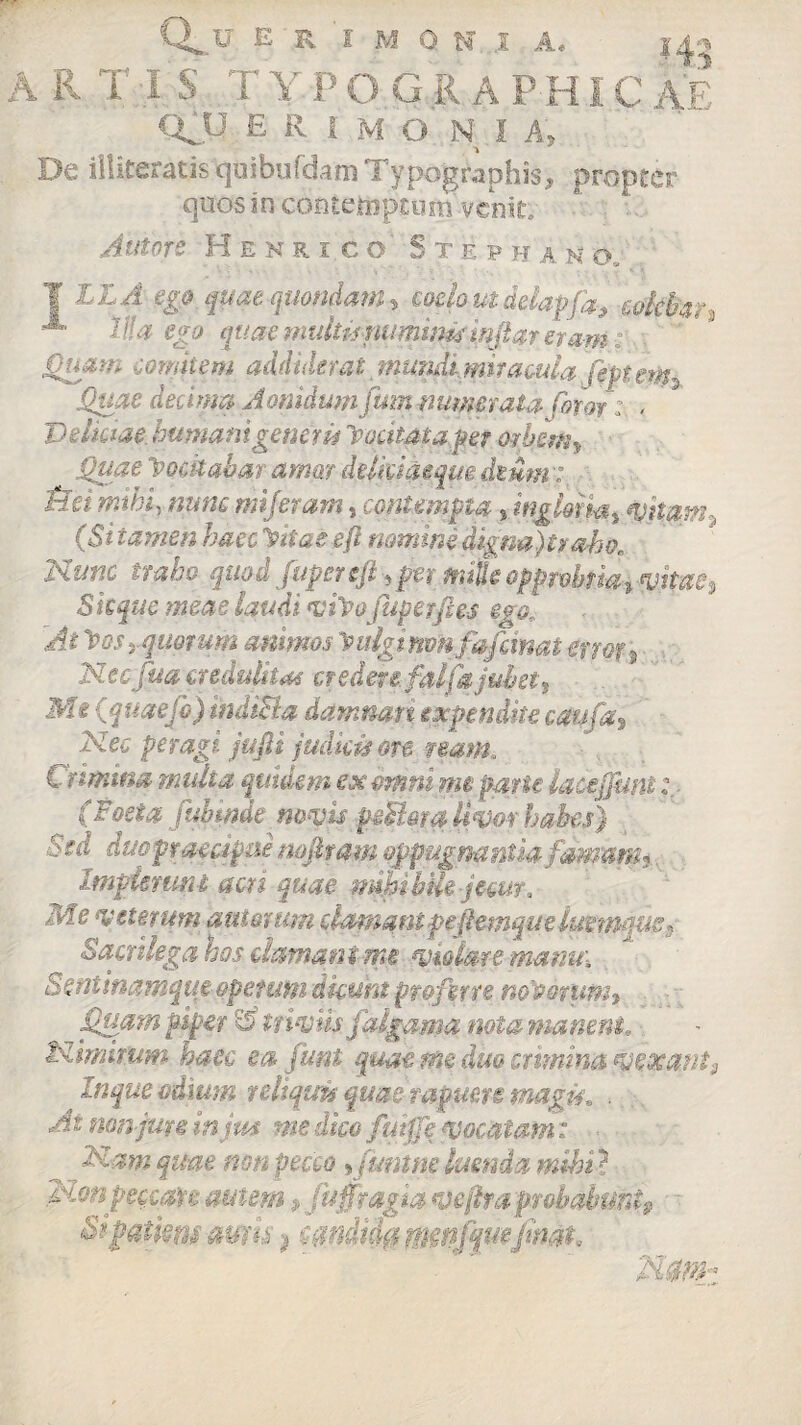 QUERIMONIA. 143
ARTIS TYPOGRAPHICAE
QUERIMONIA,
De illiteratis quibuſdam Typographis, propter
quos in contemptum venit.
Autore HENRICO STEPHANO.
ILLA ego quae quondam, coelo ut delapſa, colebar,
Illa ego quae multis numinis inſtar eram:
Quam comitem addiderat mundi miracula ſeptem,
Quae decima Aonidum ſum numerata ſoror:
Deliciae humani generis vocitata per orbem,
Quae vocitabar amor deliciaeque deûm:
Hei mihi, nunc miſeram, contempta, ingloria, vitam,
(Si tamen haec vitae eſt nomine digna) traho.
Nunc traho quod ſupereſt, per mille opprobria, vitae,
Sicque meae laudi vivo ſuperſtes ego.
At vos, quorum animos vulgi non faſcinat error,
Nec ſua credulitas credere falſa jubet,
Me (quaeſo) indicta damnari expendite cauſa,
Nec peragi juſti judicis ore ream.
Crimina multa quidem ex omni me parte laceſſunt:
(Foeta ſubinde novis pectora livor habes)
Sed duo praecipuè noſtram oppugnantia famam,
Implerunt acri quae mihi bile jecur.
Me veterum autorum clamant peſtemque luemque,
Sacrilega hos clamant me violare manu:
Sentinamque operum dicunt proferre novorum,
Quam piper & triviis ſalgama nota manent.
Nimirum haec ea ſunt quae me duo crimina vexant,
Inque odium reliquis quae rapuere magis.
At non jure in jus me dico fuiſſe vocatam:
Nam quae non pecco, ſuntne luenda mihi?
Non peccare autem, ſuffragia veſtra probabunt,
Si patiens auris, candida menſque ſinat.
Nam-